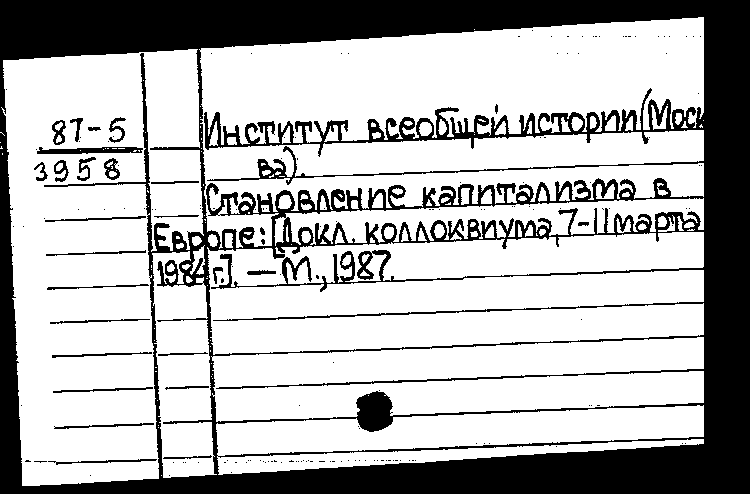 87-5
3958
Институт всеобщей истории (Моск
ва).
Становление капитализма в
Европе: [Докл. коллоквиума, 7-11 марта
1984 г.]. — М., 1987.